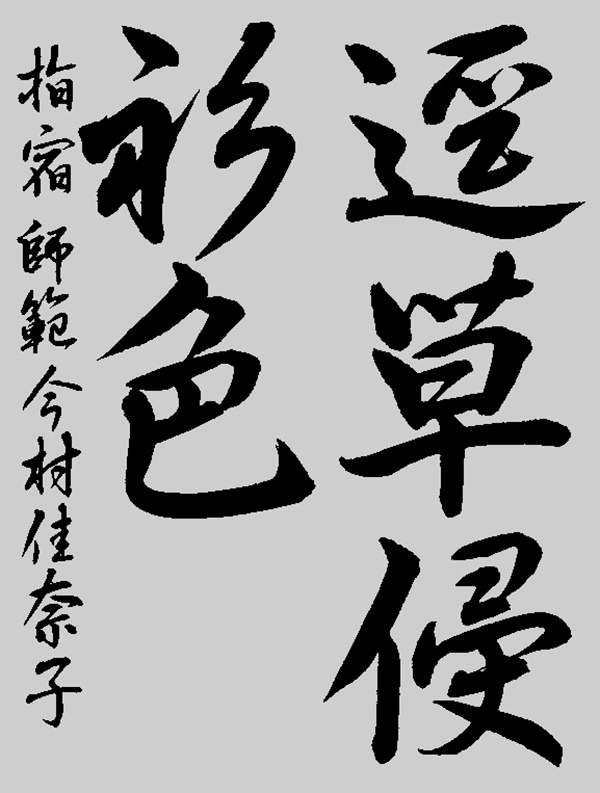 逕草侵
衫色
指宿 師範 今村佳奈子